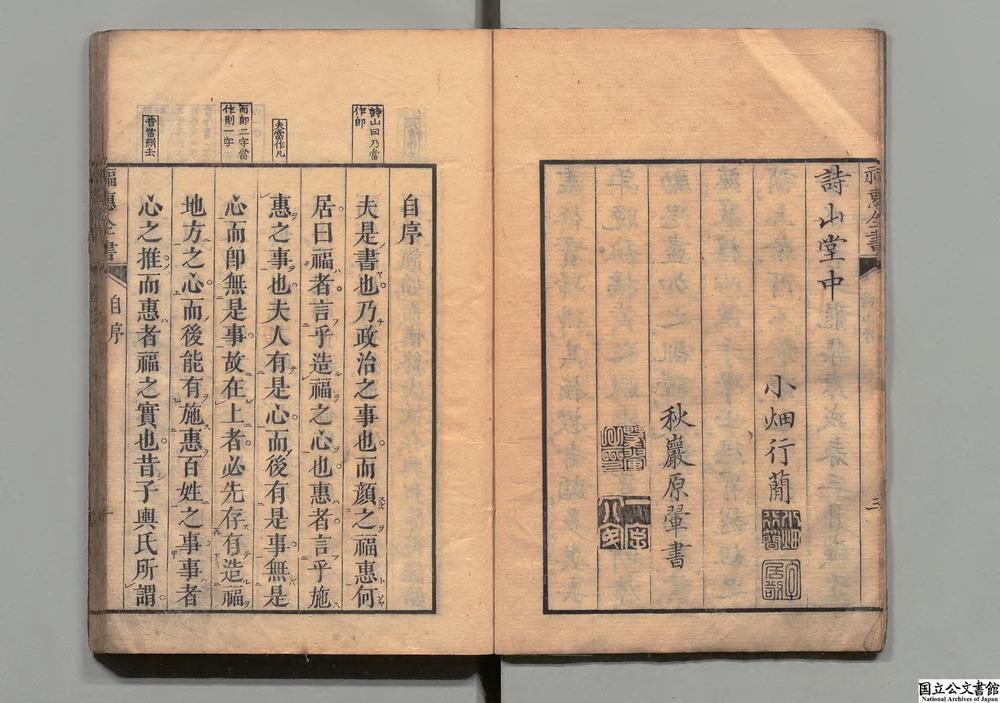 福惠全書
三
詩山堂中
小畑行蕳
秋巖原翬書
詩山曰乃當
作卽
夫當作凡
而卽二字當
作則一字
昔當刪去
自序
夫是書也乃政治之事也而顔之福惠何
居曰福者言乎造福之心也惠者言乎施
惠之事也夫人有是心而後有是事無是
心而卽無是事故在上者必先存有造福
地方之心而後能有施惠百姓之事事者
心之推而惠者福之實也昔子輿氏所謂
福惠全書
自序
一
国立公文書館
National Archives of Japan